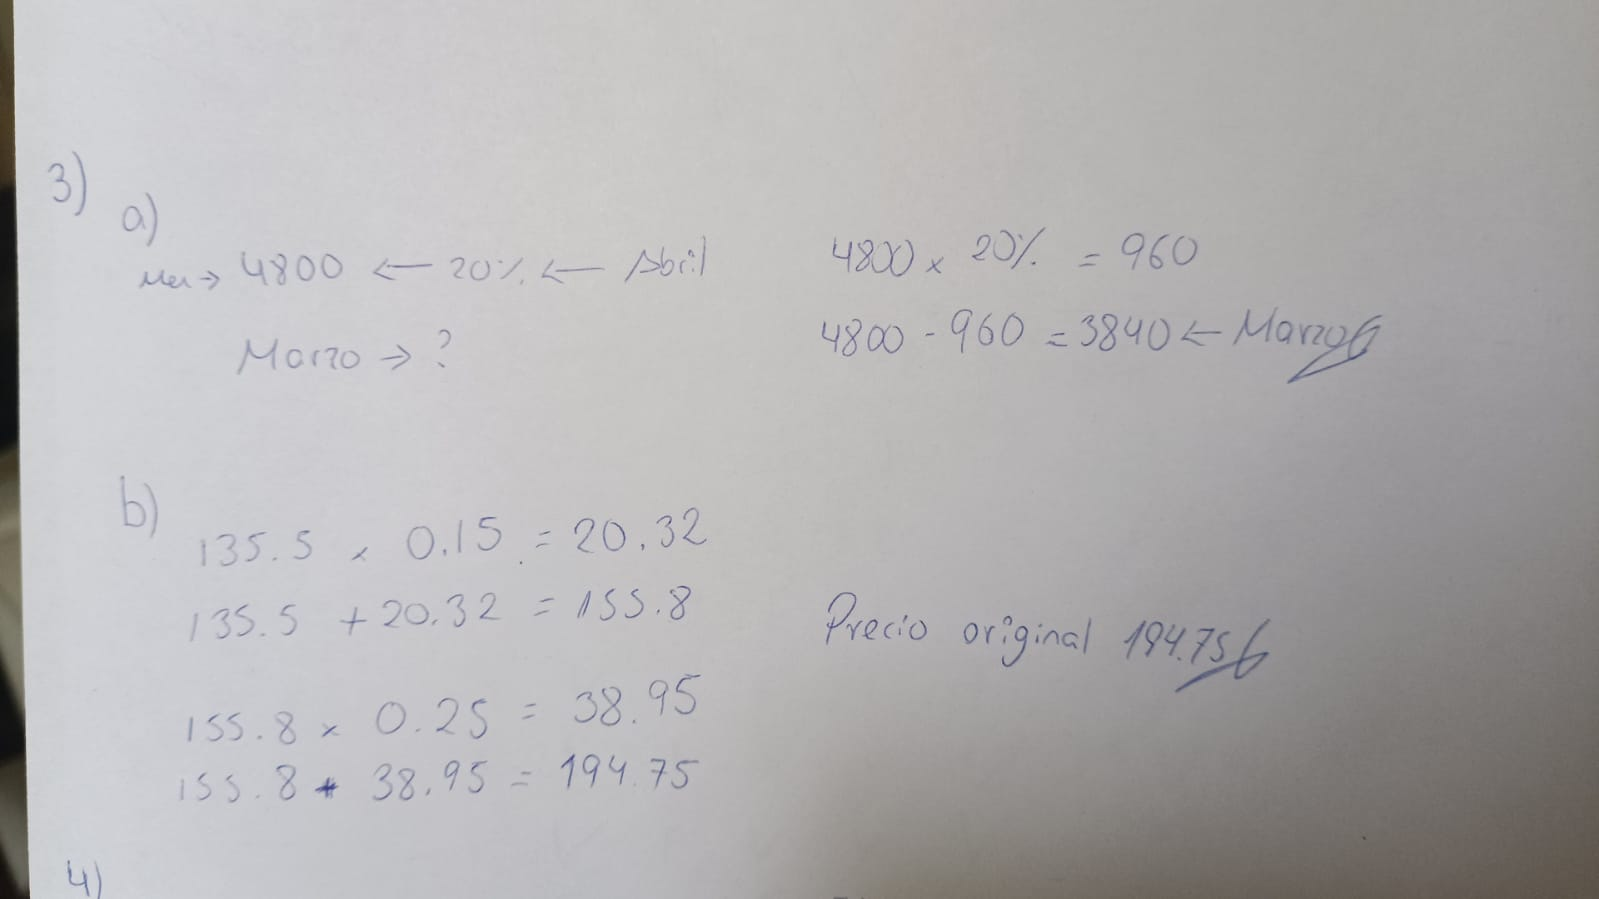 3)
a)
Mes → 4800 ← 20% ← Abril
Marzo → ?
4800 x 20% = 960
4800 - 960 = 3840 ← Marzo
b)
135.5 x 0.15 = 20.32
135.5 + 20.32 = 155.8
155.8 x 0.25 = 38.95
155.8 + 38.95 = 194.75
Precio original 194.75
4)